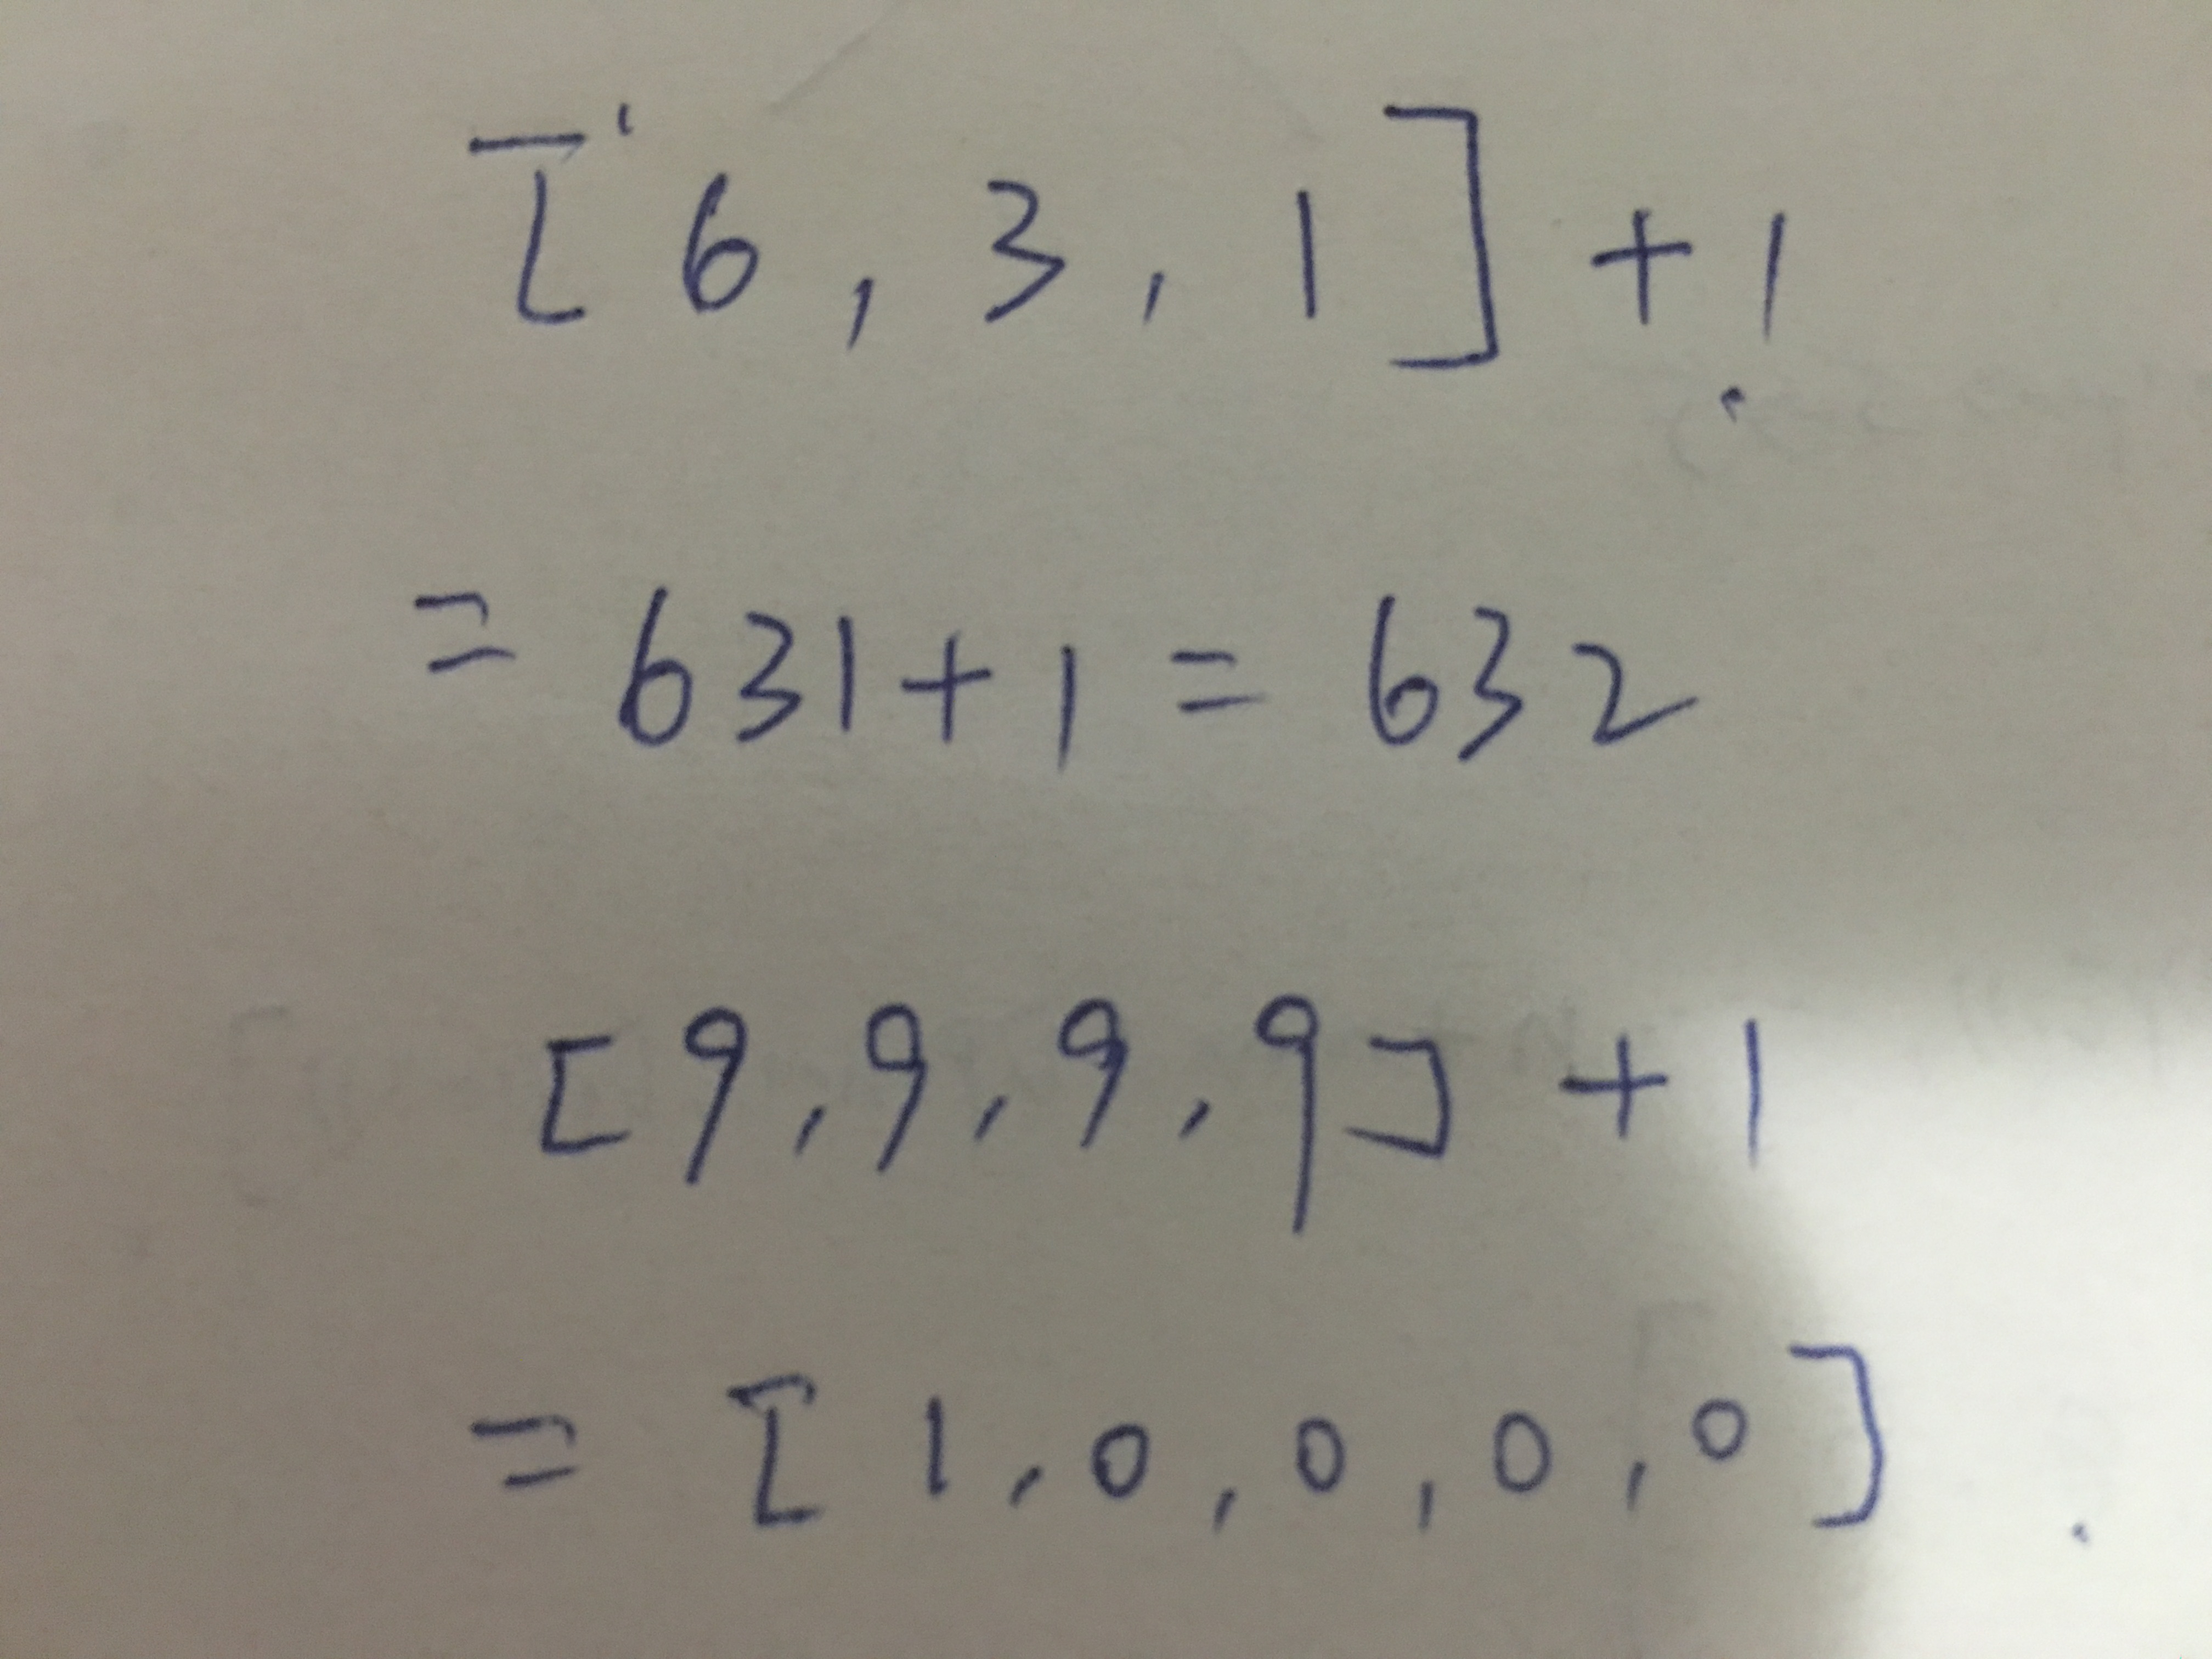 [6,3,1]+1
= 631+1 = 632
[9,9,9,9]+1
= [1,0,0,0,0]